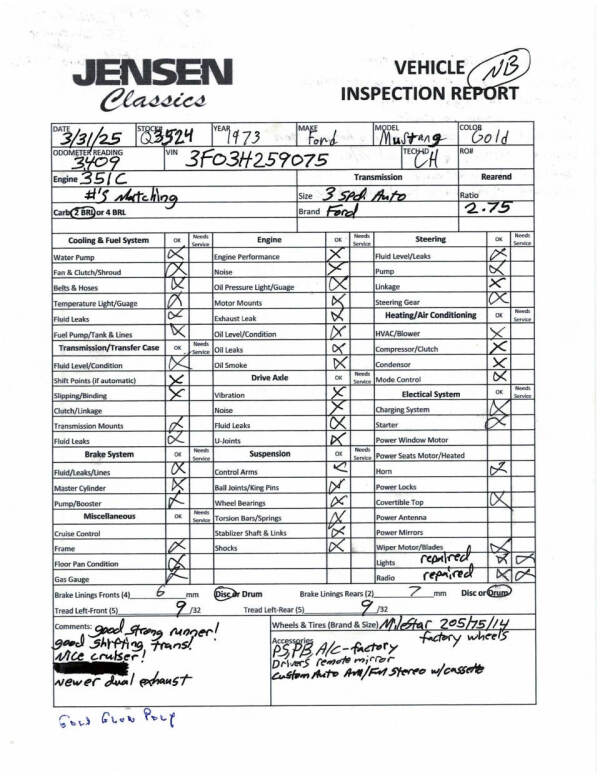 JENSEN
Classics
VEHICLE NB
INSPECTION REPORT
DATE 3/31/25 STOCK# Q3524 YEAR 1973 MAKE Ford MODEL Mustang COLOR Gold
ODOMETER READING 3,409 VIN 3F03H259075 TECH ID CH RO#
Engine 351C Transmission Rearend
#'s Matching Size 3 spd Auto Ratio
Carb 2 BRL or 4 BRL Brand Ford 2.75
Cooling & Fuel System OK Needs Service Engine OK Needs Service Steering OK Needs Service
Water Pump Engine Performance Fluid Level/Leaks
Fan & Clutch/Shroud Noise Pump
Belts & Hoses Oil Pressure Light/Guage Linkage
Temperature Light/Guage Motor Mounts Steering Gear
Fluid Leaks Exhaust Leak Heating/Air Conditioning OK Needs Service
Fuel Pump/Tank & Lines Oil Level/Condition HVAC/Blower
Transmission/Transfer Case OK Needs Service Oil Leaks Compressor/Clutch
Fluid Level/Condition Oil Smoke Condensor
Shift Points (if automatic) Drive Axle OK Needs Service Mode Control
Slipping/Binding Vibration Electical System OK Needs Service
Clutch/Linkage Noise Charging System
Transmission Mounts Fluid Leaks Starter
Fluid Leaks U-Joints Power Window Motor
Brake System OK Needs Service Suspension OK Needs Service Power Seats Motor/Heated
Fluid/Leaks/Lines Control Arms Horn
Master Cylinder Ball Joints/King Pins Power Locks
Pump/Booster Wheel Bearings Covertible Top
Miscellaneous OK Needs Service Torsion Bars/Springs Power Antenna
Cruise Control Stablizer Shaft & Links Power Mirrors
Frame Shocks Wiper Motor/Blades
Floor Pan Condition Lights repaired
Gas Gauge Radio repaired
Brake Linings Fronts (4) 6 mm Disc or Drum Brake Linings Rears (2) 7 mm Disc or Drum
Tread Left-Front (5) 9 /32 Tread Left-Rear (5) 9 /32
Comments: good strong runner!
good shifting trans!
Nice cruiser!
Newer dual exhaust
Wheels & Tires (Brand & Size) Milestar 205/75/14
factory wheels
Accessories
PS, PB, A/C-factory
Drivers remote mirror
Custom Auto Am/Fm Stereo w/cassette
Gold Glow Poly